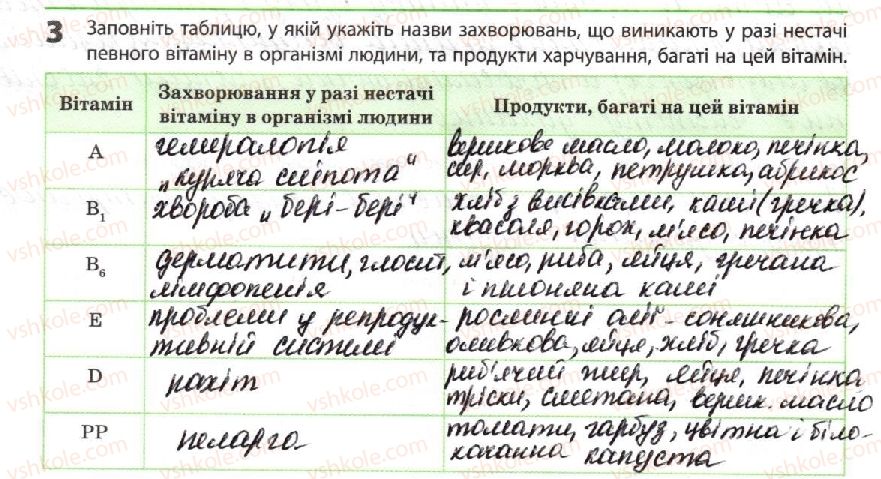 3 Заповніть таблицю, у якій укажіть назви захворювань, що виникають у разі нестачі
певного вітаміну в організмі людини, та продукти харчування, багаті на цей вітамін.
Вітамін
Захворювання у разі нестачі
вітаміну в організмі людини
Продукти, багаті на цей вітамін
A
гемералопія
„куряча сліпота"
вершкове масло, молоко, печінка,
сир, морква, петрушка, абрикос
B1
хвороба „бері-бері"
хліб з висівками, каші (гречка),
квасоля, горох, м'ясо, печінка
B6
дерматити, глосит,
лімфопенія
м'ясо, риба, яйця, гречана
і пшоняна каші
E
проблеми у репродук-
тивній системі
рослинні олії - соняшникова,
оливкова, яйця, хліб, гречка
D
рахіт
риб'ячий жир, яйця, печінка
тріски, сметана, вершк. масло
PP
пелагра
томати, гарбуз, цвітна і біло-
качанна капуста
vshkole.com